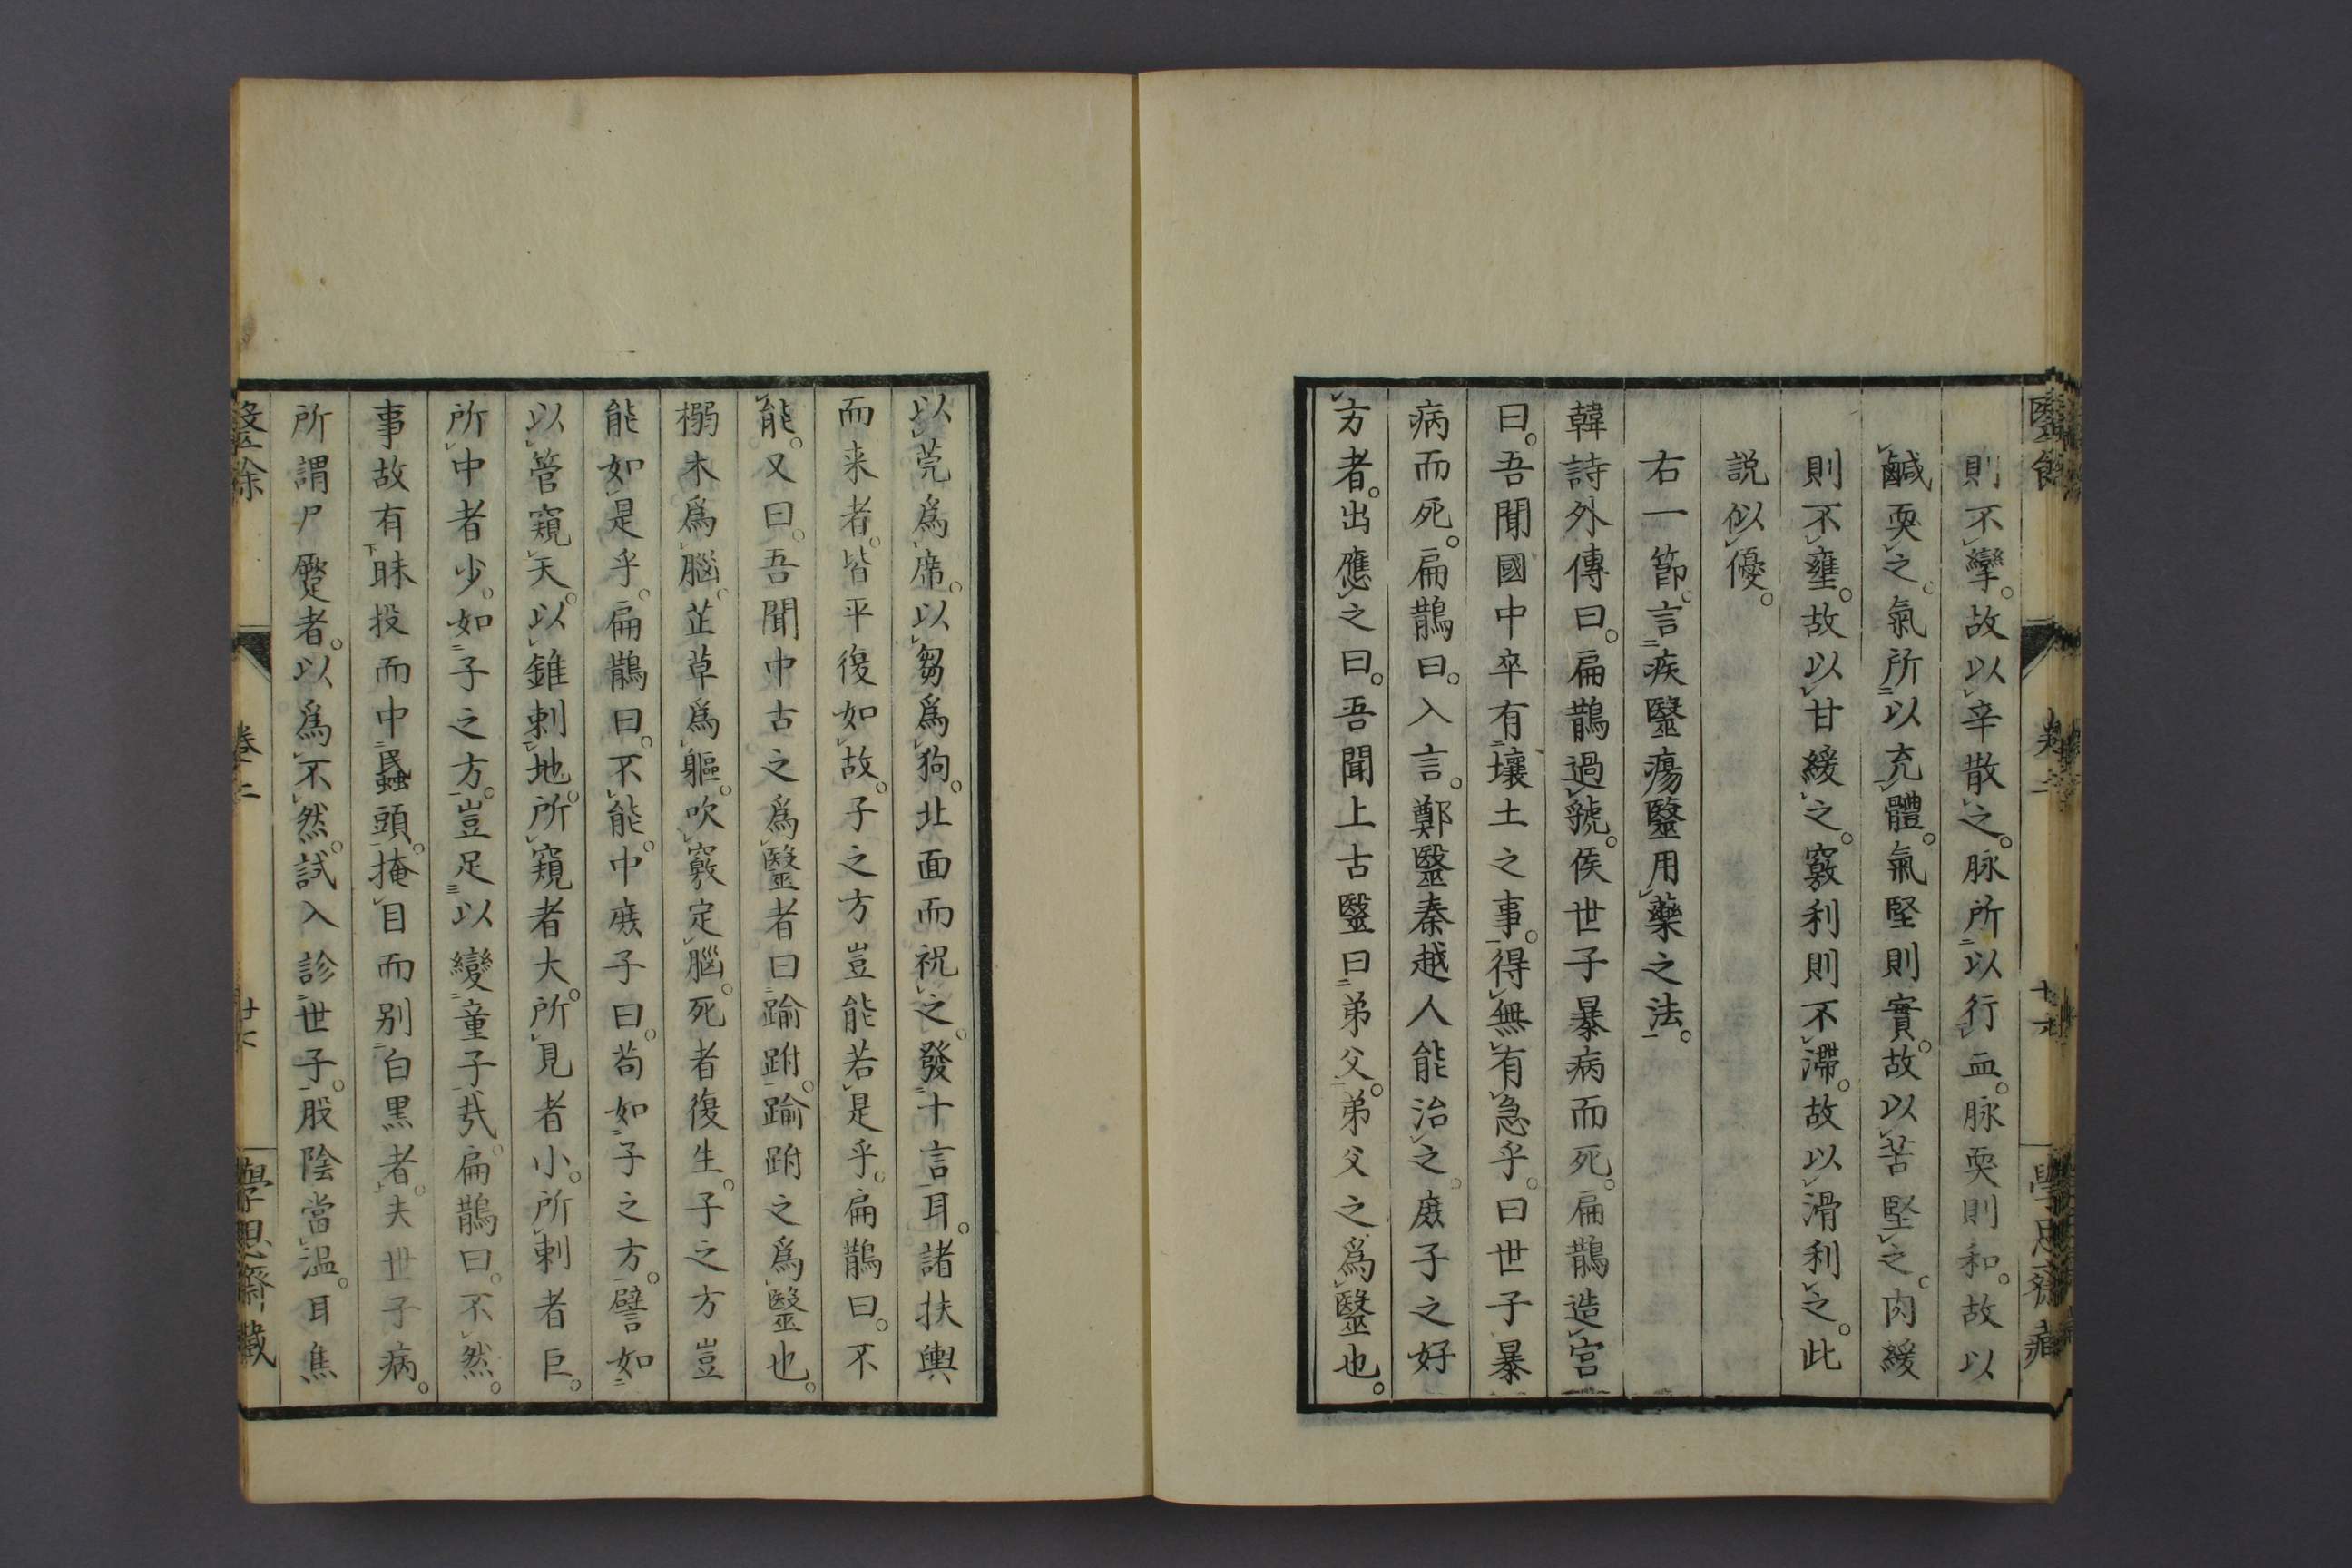 則不攣。故以辛散之。脉所以行血。脉耎則和。故以
鹹耎之。氣所以充體。氣堅則實。故以苦堅之。肉緩
則不壅。故以甘緩之。竅利則不滯。故以滑利之。此
説似優。
右一節。言疾毉瘍毉用藥之法。
韓詩外傳曰。扁鵲過虢。侯世子暴病而死。扁鵲造宮
曰。吾聞國中卒有壤土之事。得無有急乎。曰世子暴
病而死。扁鵲曰。入言。鄭毉秦越人能治之。庶子之好
方者。出應之曰。吾聞上古毉曰弟父。弟父之爲毉也。
以莞爲席。以芻爲狗。北面而祝之。發十言耳。諸扶輿
而来者。皆平復如故。子之方豈能若是乎。扁鵲曰。不
能。又曰。吾聞中古之爲毉者曰踰跗。踰跗之爲毉也。
搦木爲腦。芷草爲軀。吹竅定腦。死者復生。子之方豈
能如是乎。扁鵲曰。不能。中庶子曰。苟如子之方。譬如
以管窺天。以錐刺地。所窺者大。所見者小。所刺者巨。
所中者少。如子之方。豈足以變童子㢤。扁鵲曰。不然。
事故有昧投而中蟁頭。掩目而别白黒者。夫世子病。
所謂尸蹷者。以爲不然。試入診世子。股陰當温。耳焦
毉餘
卷二
學思齋藏